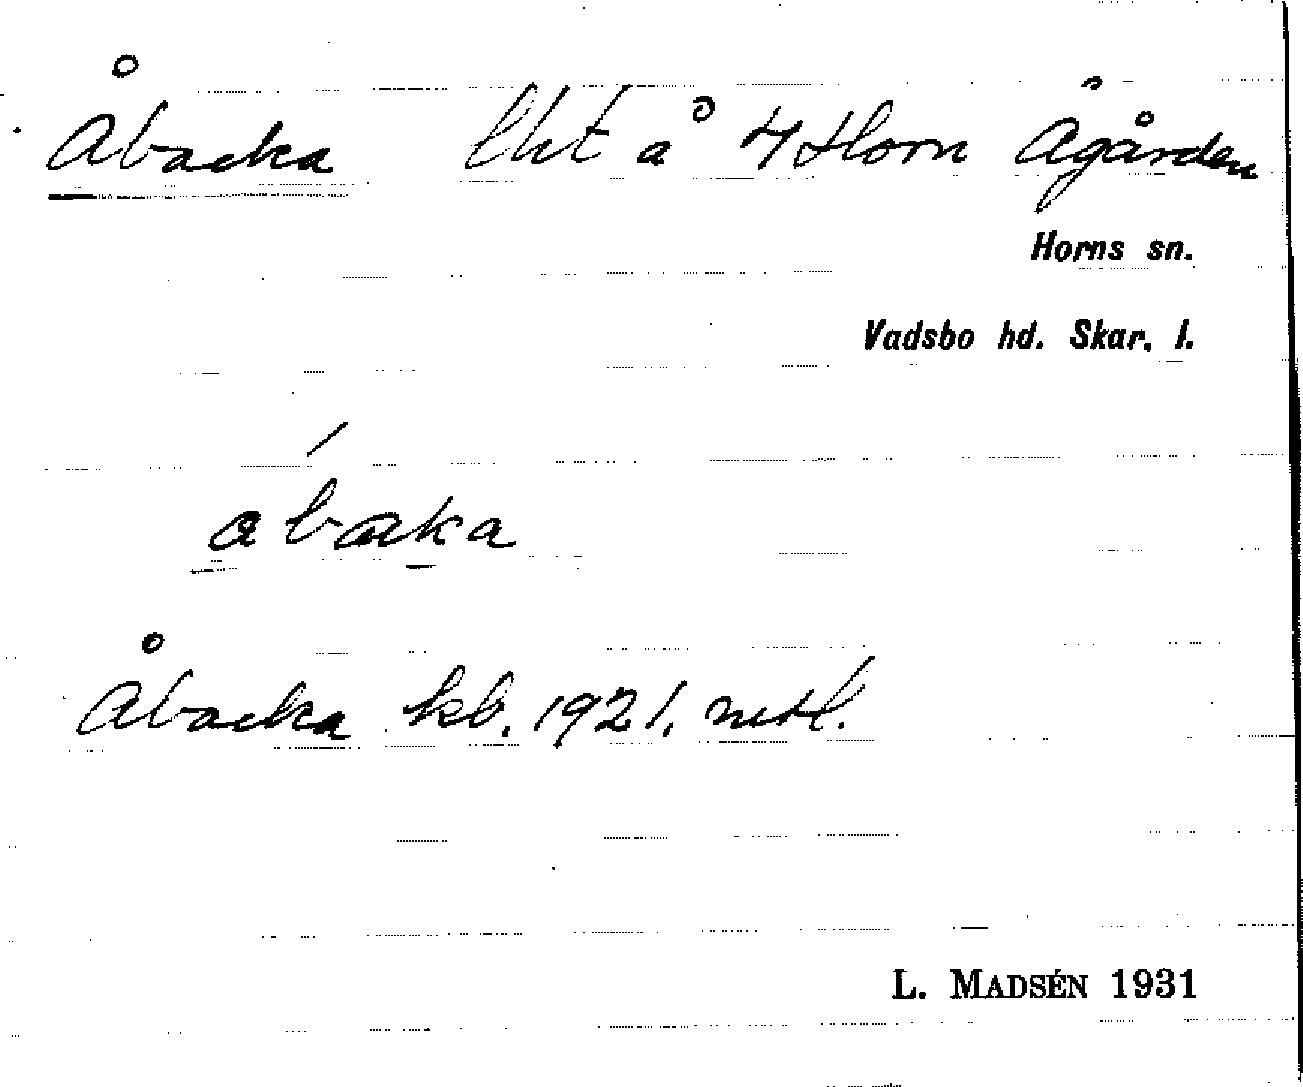 Åbacka lht å 4 Horn Ågården
Horns sn.
Vadsbo hd. Skar. l.
åbaka
Åbacka kb. 1921. mtl.
L. MADSÉN 1931